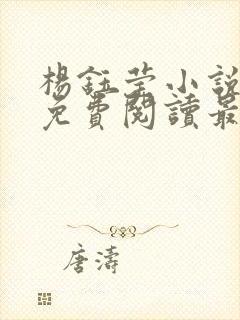 楊鈺莹小說
免費閱讀最
唐濤